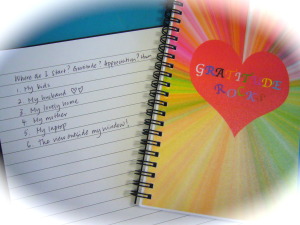 Where do I start? Gratitude? Appreciation?
1. My kids
2. My husband ♡♡
3. My lovely home
4. My mother
5. My laptop
6. The view outside my window!
GRATITUDE
ROCKS